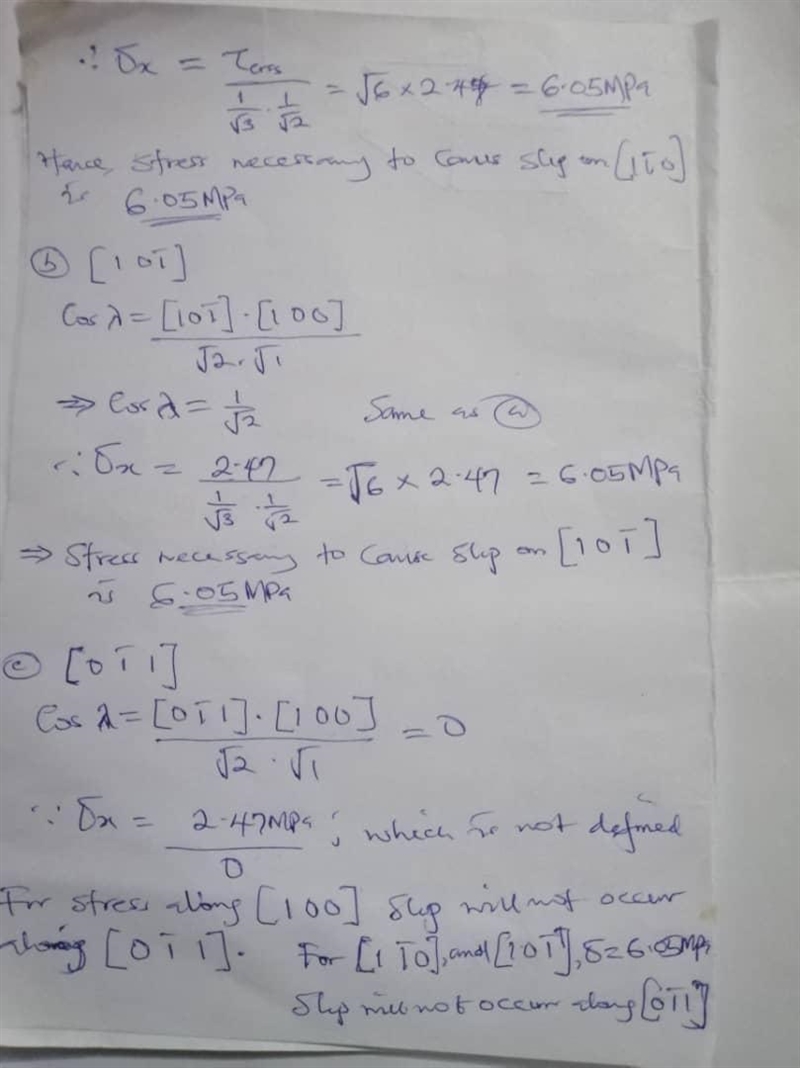 ∴ σx = τcrss / (1/√3 · 1/√2) = √6 × 2.47 = 6.05MPa
Hence, stress necessary to cause slip on [1 1̄ 0]
is 6.05MPa
ⓑ [1 0 1̄]
Cos λ = [1 0 1̄] · [1 0 0] / √2 · √1
⇒ Cos λ = 1/√2 Same as ⓐ
∴ σx = 2.47 / (1/√3 · 1/√2) = √6 × 2.47 = 6.05MPa
⇒ Stress necessary to cause slip on [1 0 1̄]
is 6.05MPa
ⓒ [0 1̄ 1]
Cos λ = [0 1̄ 1] · [1 0 0] / √2 · √1 = 0
∴ σx = 2.47MPa / 0 ; which is not defined
For stress along [1 0 0] slip will not occur
along [0 1̄ 1]. For [1 1̄ 0], and [1 0 1̄], σ = 6.05MPa
Slip will not occur along [0 1̄ 1]